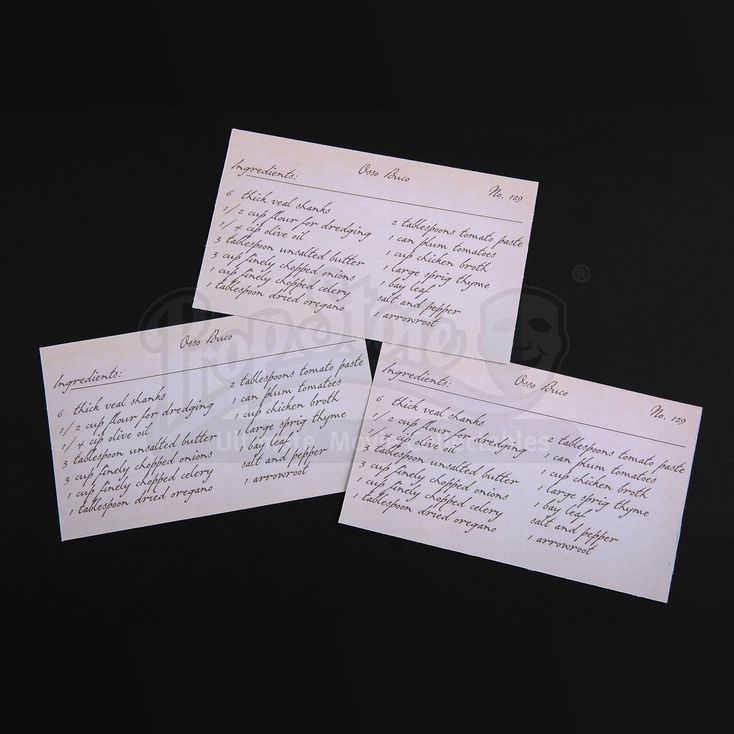 Osso Buco
Ingredients:
No. 129
6 thick veal shanks
1/2 cup flour for dredging
1/4 cip olive oil
3 tablespoon unsalted butter
3 cup finely chopped onions
1 cup finely chopped celery
1 tablespoon dried oregano
2 tablespoons tomato paste
1 can plum tomatoes
1 cup chicken broth
1 large sprig thyme
1 bay leaf
salt and pepper
1 arrowroot
Osso Buco
Ingredients:
6 thick veal shanks
1/2 cup flour for dredging
1/4 cip olive oil
3 tablespoon unsalted butter
3 cup finely chopped onions
1 cup finely chopped celery
1 tablespoon dried oregano
2 tablespoons tomato paste
1 can plum tomatoes
1 cup chicken broth
1 large sprig thyme
1 bay leaf
salt and pepper
1 arrowroot
Osso Buco
Ingredients:
No. 129
6 thick veal shanks
1/2 cup flour for dredging
1/4 cip olive oil
3 tablespoon unsalted butter
3 cup finely chopped onions
1 cup finely chopped celery
1 tablespoon dried oregano
2 tablespoons tomato paste
1 can plum tomatoes
1 cup chicken broth
1 large sprig thyme
1 bay leaf
salt and pepper
1 arrowroot
Propstore ®
Ultimate Movie Collectables